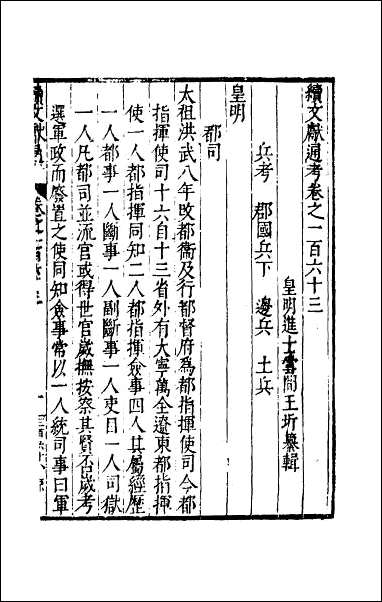 續文獻通考卷之一百六十三
皇明進士雲間王圻纂輯
兵考　郡國兵下　邊兵　土兵
皇明
都司
太祖洪武八年改都衛及行都督府為都指揮使司今都
指揮使司十六自十三省外有大寧萬全遼東都指揮
使一人都指揮同知二人都指揮僉事四人其屬經歷
一人都事一人斷事一人副斷事一人吏目一人司獄
一人凡都司並流官或得世官歲撫按察其賢否歲考
選軍政而廢置之使同知僉事常以一人統司事曰軍
續文獻通考